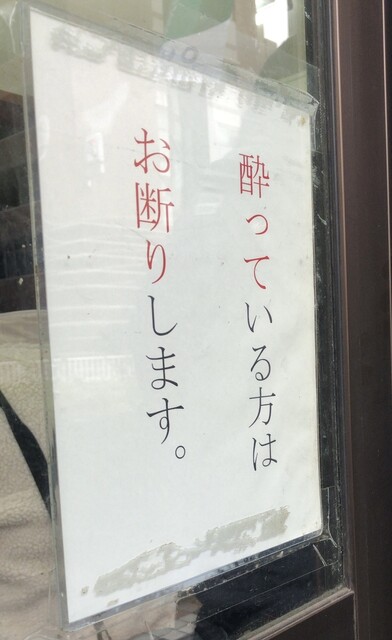 酔っている方は
お断りします。